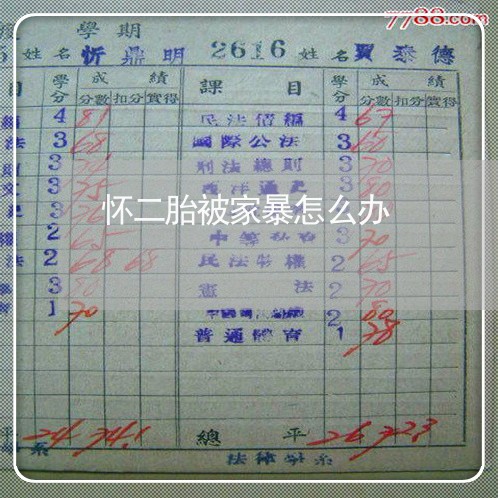 7788.com
學期
姓名 忻鼎明 2616 姓名 賈泰德
目 學分 成績 課目 學分 成績
分數 扣分 實得 分數 扣分 實得
4 81 民法債編 4 67
法 3 68 國際公法 3 60
則 3 刑法總則 3 70
3 75 西洋通史 3 80
怀二胎被家暴怎么办
2 65 3 70
法 2 68 68 民法物權 2 65
3 80 憲法 2 70
1 70 2 80
普通體育 1 78
平 24 74.1 總平 26 72.3
系 法律學系